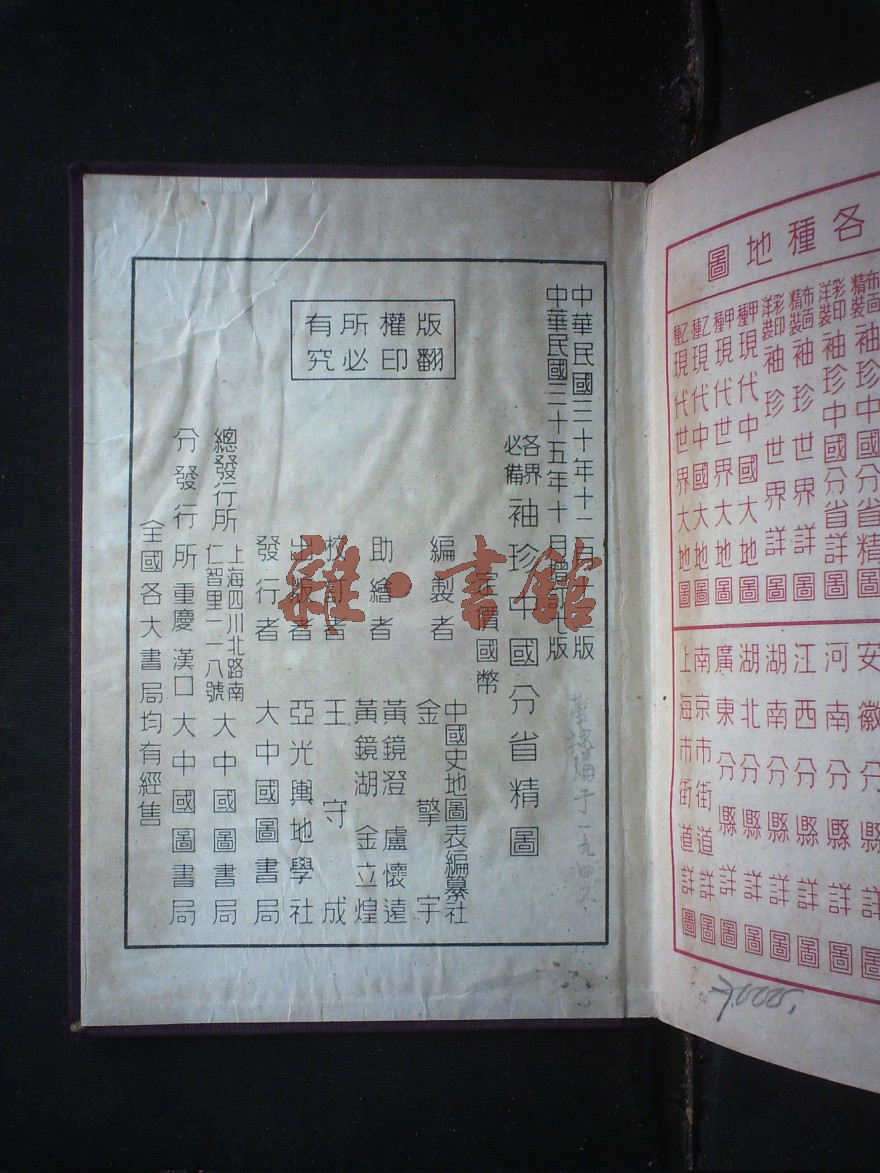 各種地圖
布面精裝袖珍中國分省精圖
彩印洋裝袖珍中國分省詳圖
布面精裝袖珍世界詳圖
彩印洋裝袖珍世界詳圖
甲種現代中國大地圖
甲種現代世界大地圖
乙種現代中國大地圖
乙種現代世界大地圖
安徽分縣詳圖
河南分縣詳圖
江西分縣詳圖
湖南分縣詳圖
湖北分縣詳圖
廣東分縣詳圖
南京市街道詳圖
上海市街道詳圖
中華民國三十年十二月版
中華民國三十五年十月增訂七版
于一九四
各界必備袖珍中國分省精圖
定價國幣
編製者 中國史地圖表編纂社
金擎宇
助繪者 黃鏡澄 盧懷遠
黃鏡湖 金立煌
校訂者 王守成
出版者 亞光輿地學社
發行者 大中國圖書局
總發行所 上海四川北路南仁智里一一八號 大中國圖書局
分發行所 重慶 漢口 大中國圖書局
全國各大書局均有經售
版權所有
翻印必究
雜·書館